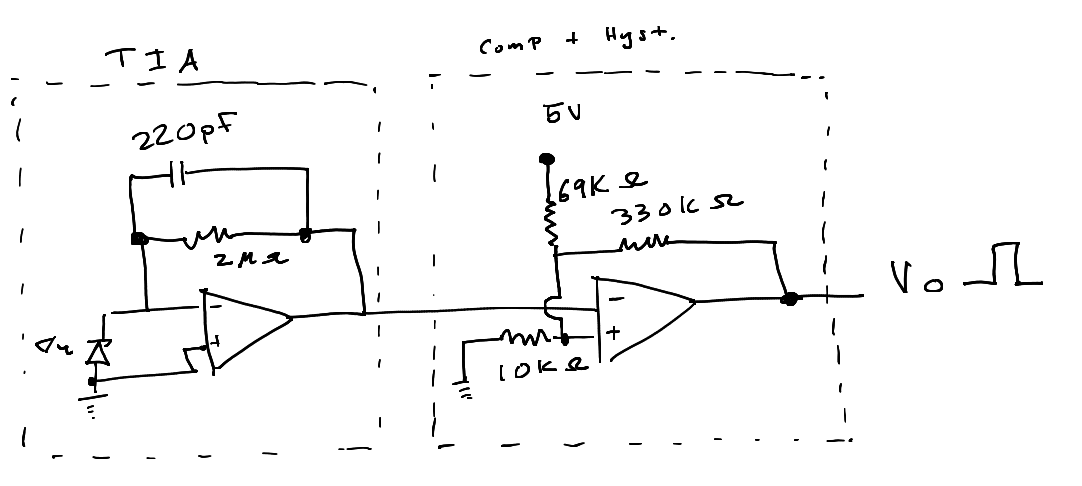 TIA
Comp + Hyst.
220pF
2MΩ
-
+
5V
69KΩ
330KΩ
-
+
10KΩ
Vo